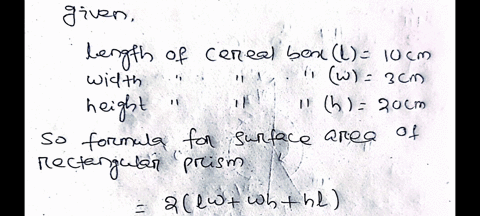 given,
Length of cereal box (l) = 10cm
width " " " (w) = 3cm
height " " " (h) = 20cm
So formula for surface area of
rectangular prism
= 2(lw + wh + hl)